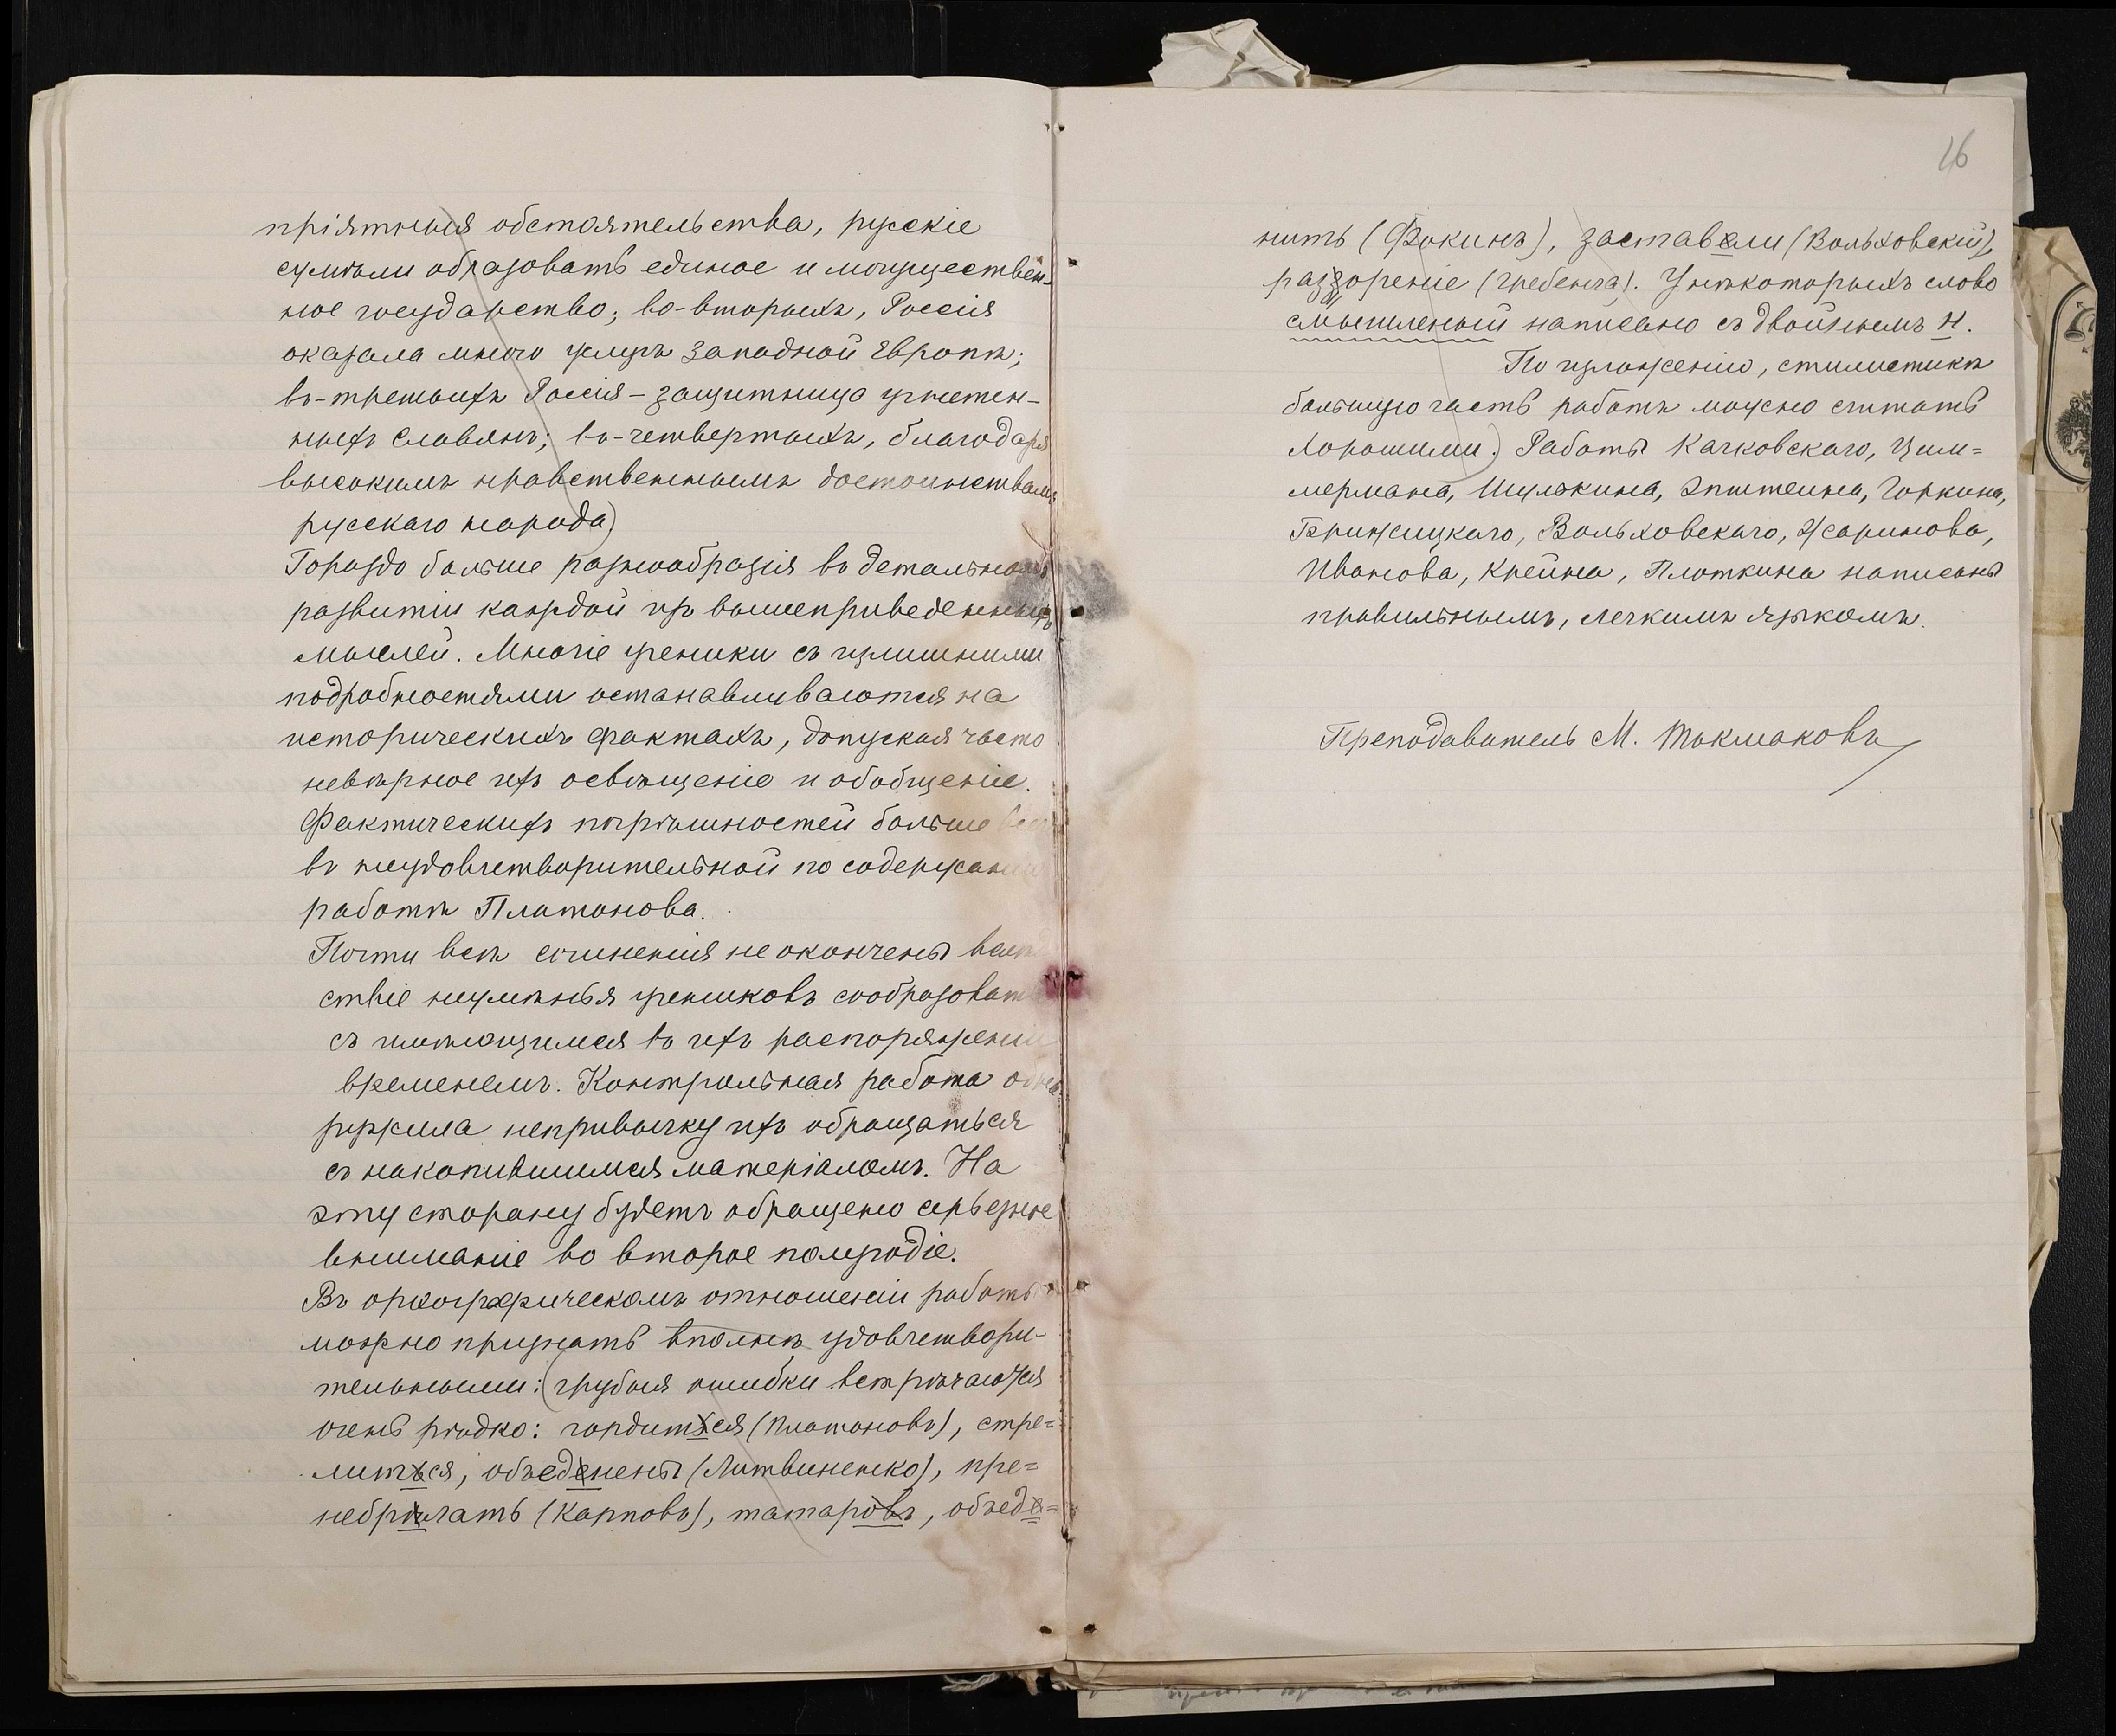 пріятныя обстоятельства, русскіе
сумѣли образовать единое и могуществен-
ное государство; во-вторыхъ, Россія
оказала много услугъ Западной Европѣ;
въ-третьихъ Россія – защитница угнетен-
ныхъ Славянъ; въ-четвертыхъ, благодаря
высокимъ нравственнымъ достоинствамъ
русскаго народа)
Гораздо больше разнообразія въ детальномъ
развитіи каждой изъ вышеприведенныхъ
мыслей. Многіе ученики съ излишними
подробностями останавливаются на
историческихъ фактахъ, допуская часто
невѣрное ихъ освѣщеніе и обобщеніе.
Фактическихъ погрѣшностей больше
въ неудовлетворительной по содержанію
работѣ Платонова.
Почти всѣ сочиненія не окончены вслѣд
ствіе неумѣнья учениковъ сообразовать
съ имѣющимся въ ихъ распоряженіи
временемъ. Контрольная работа обна
ружила непривычку ихъ обращаться
съ накопившимся матеріаломъ. На
эту сторону будетъ обращено серьезное
вниманіе во второе полугодіе.
Въ орѳографическомъ отношеніи работы
можно признать вполнѣ удовлетвори-
тельными: (грубыя ошибки встрѣчаются
очень рѣдко: гордитъся (Платоновъ), стре=
литься, объеденены (Литвиненко), пре=
небригать (Карповъ), татаровъ, объеде=
26
нить (Фокинъ), заставели (Вольховскій),
раззореніе (Гребенча). У нѣкоторыхъ слово
смышленый написано съ двойнымъ н.
По изложенію, стилистикѣ
большую часть работъ можно считать
хорошими.) Работы Качковскаго, Цим=
мермана, Шулжина, Эпштейна, Горкина,
Бржицкаго, Вольховскаго, Жаринова,
Иванова, Крейна, Плоткина написаны
правильнымъ, легкимъ языкомъ.
Преподаватель М. Токмаковъ